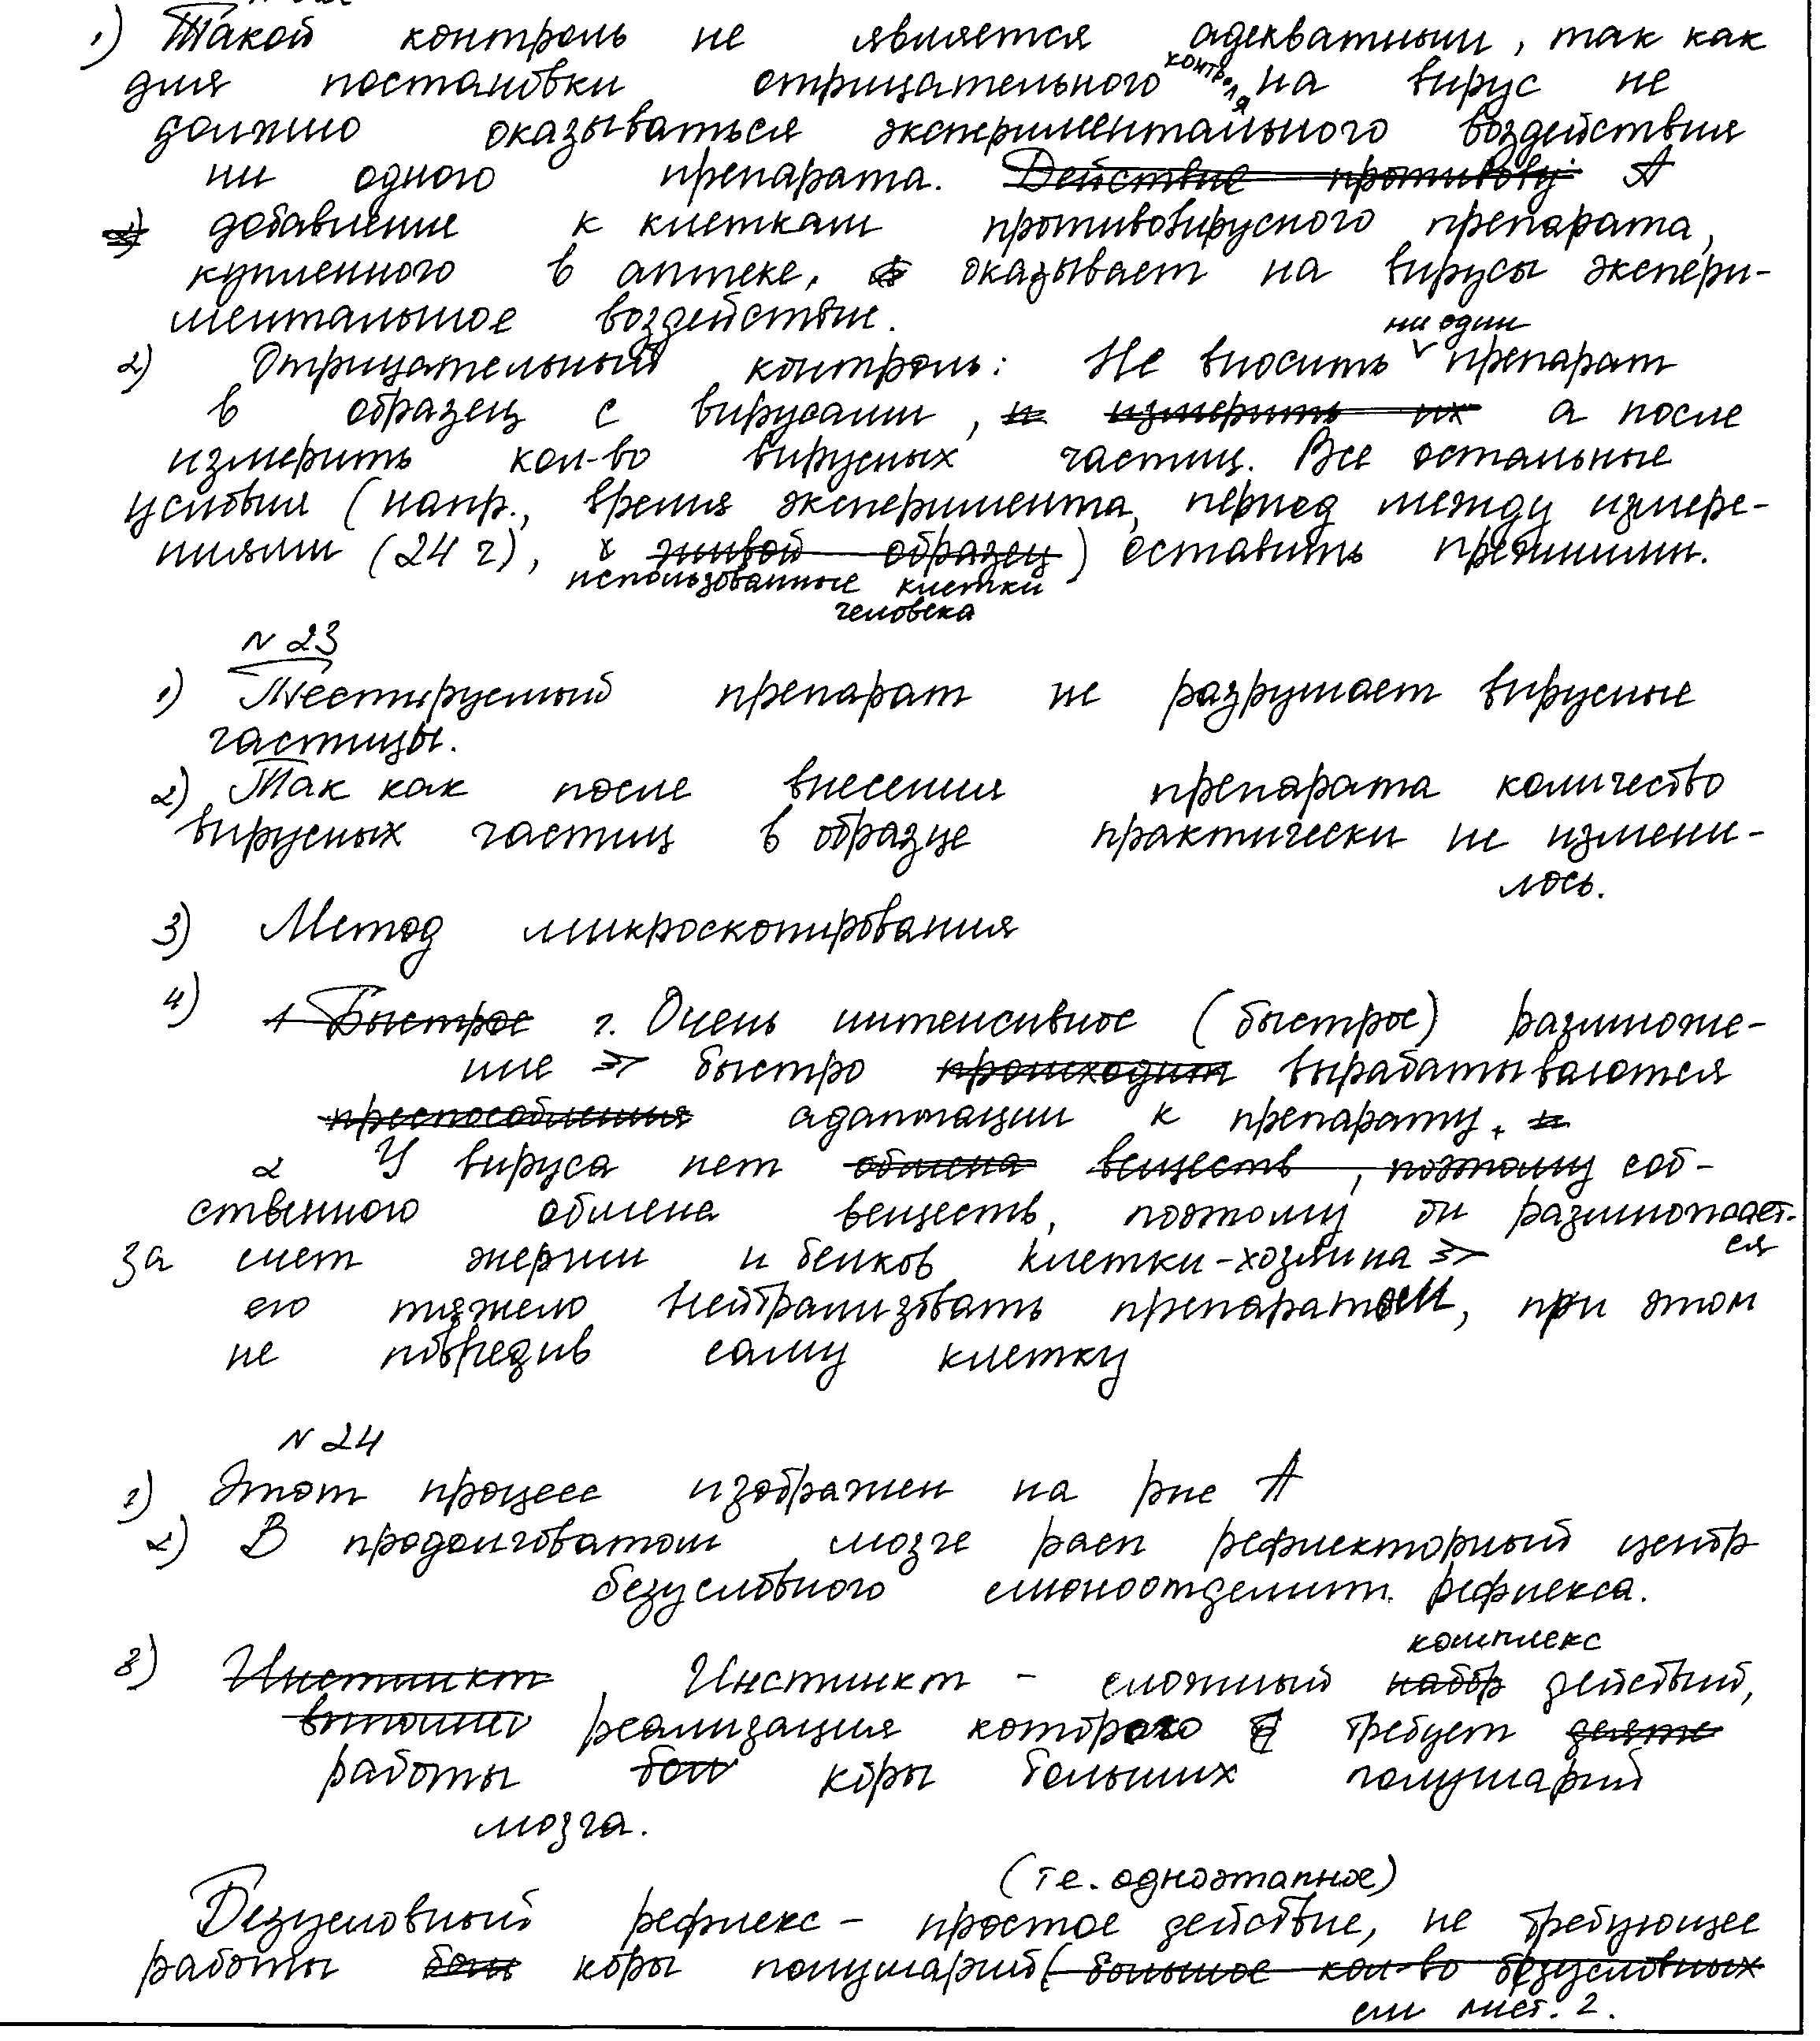 1) Такой контроль не является адекватным, так как
для постановки отрицательного контроля на вирус не
должно оказываться экспериментального воздействия
ни одного препарата. ~~Действие противову~~ А
добавление к клеткам противовирусного препарата,
купленного в аптеке, оказывает на вирусы экспери-
ментальное воздействие.
2) Отрицательный контроль: Не вносить ни один препарат
в образец с вирусами, ~~и измерить их~~ а после
измерить кол-во вирусных частиц. Все остальные
условия (напр., время эксперимента, период между измере-
ниями (24 ч), ~~живой образец~~ использованные клетки
человека) оставить прежними.
N 23
1) Тестируемый препарат не разрушает вирусные
частицы.
2) Так как после внесения препарата количество
вирусных частиц в образце практически не измени-
лось.
3) Метод микроскопирования
4) ~~1 Быстрое~~ 1. Очень интенсивное (быстрое) размноже-
ние => быстро ~~происходит~~ вырабатываются
~~преспособления~~ адаптации к препарату. ~~и~~
2 У вируса нет ~~обмена веществ, поэтому~~ соб-
ственного обмена веществ, поэтому он размножает-
ся
за счет энергии и белков клетки-хозяина =>
его тяжело нейтрализовать препаратом, при этом
не повредив саму клетку
N 24
1) Этот процесс изображен на рис А
2) В продолговатом мозге расп рефлекторный центр
безусловного слюноотделит. рефлекса.
3) ~~Инстинкт~~ Инстинкт - сложный ~~набор~~ комплекс действий,
реализация которого требует
работы ~~бол~~ коры больших полушарий
мозга.
Безусловный рефлекс - простое (т.е. одноэтапное) действие, не требующее
работы ~~бол~~ коры полушарий ~~(большое кол-во безусловных~~
см лист. 2.